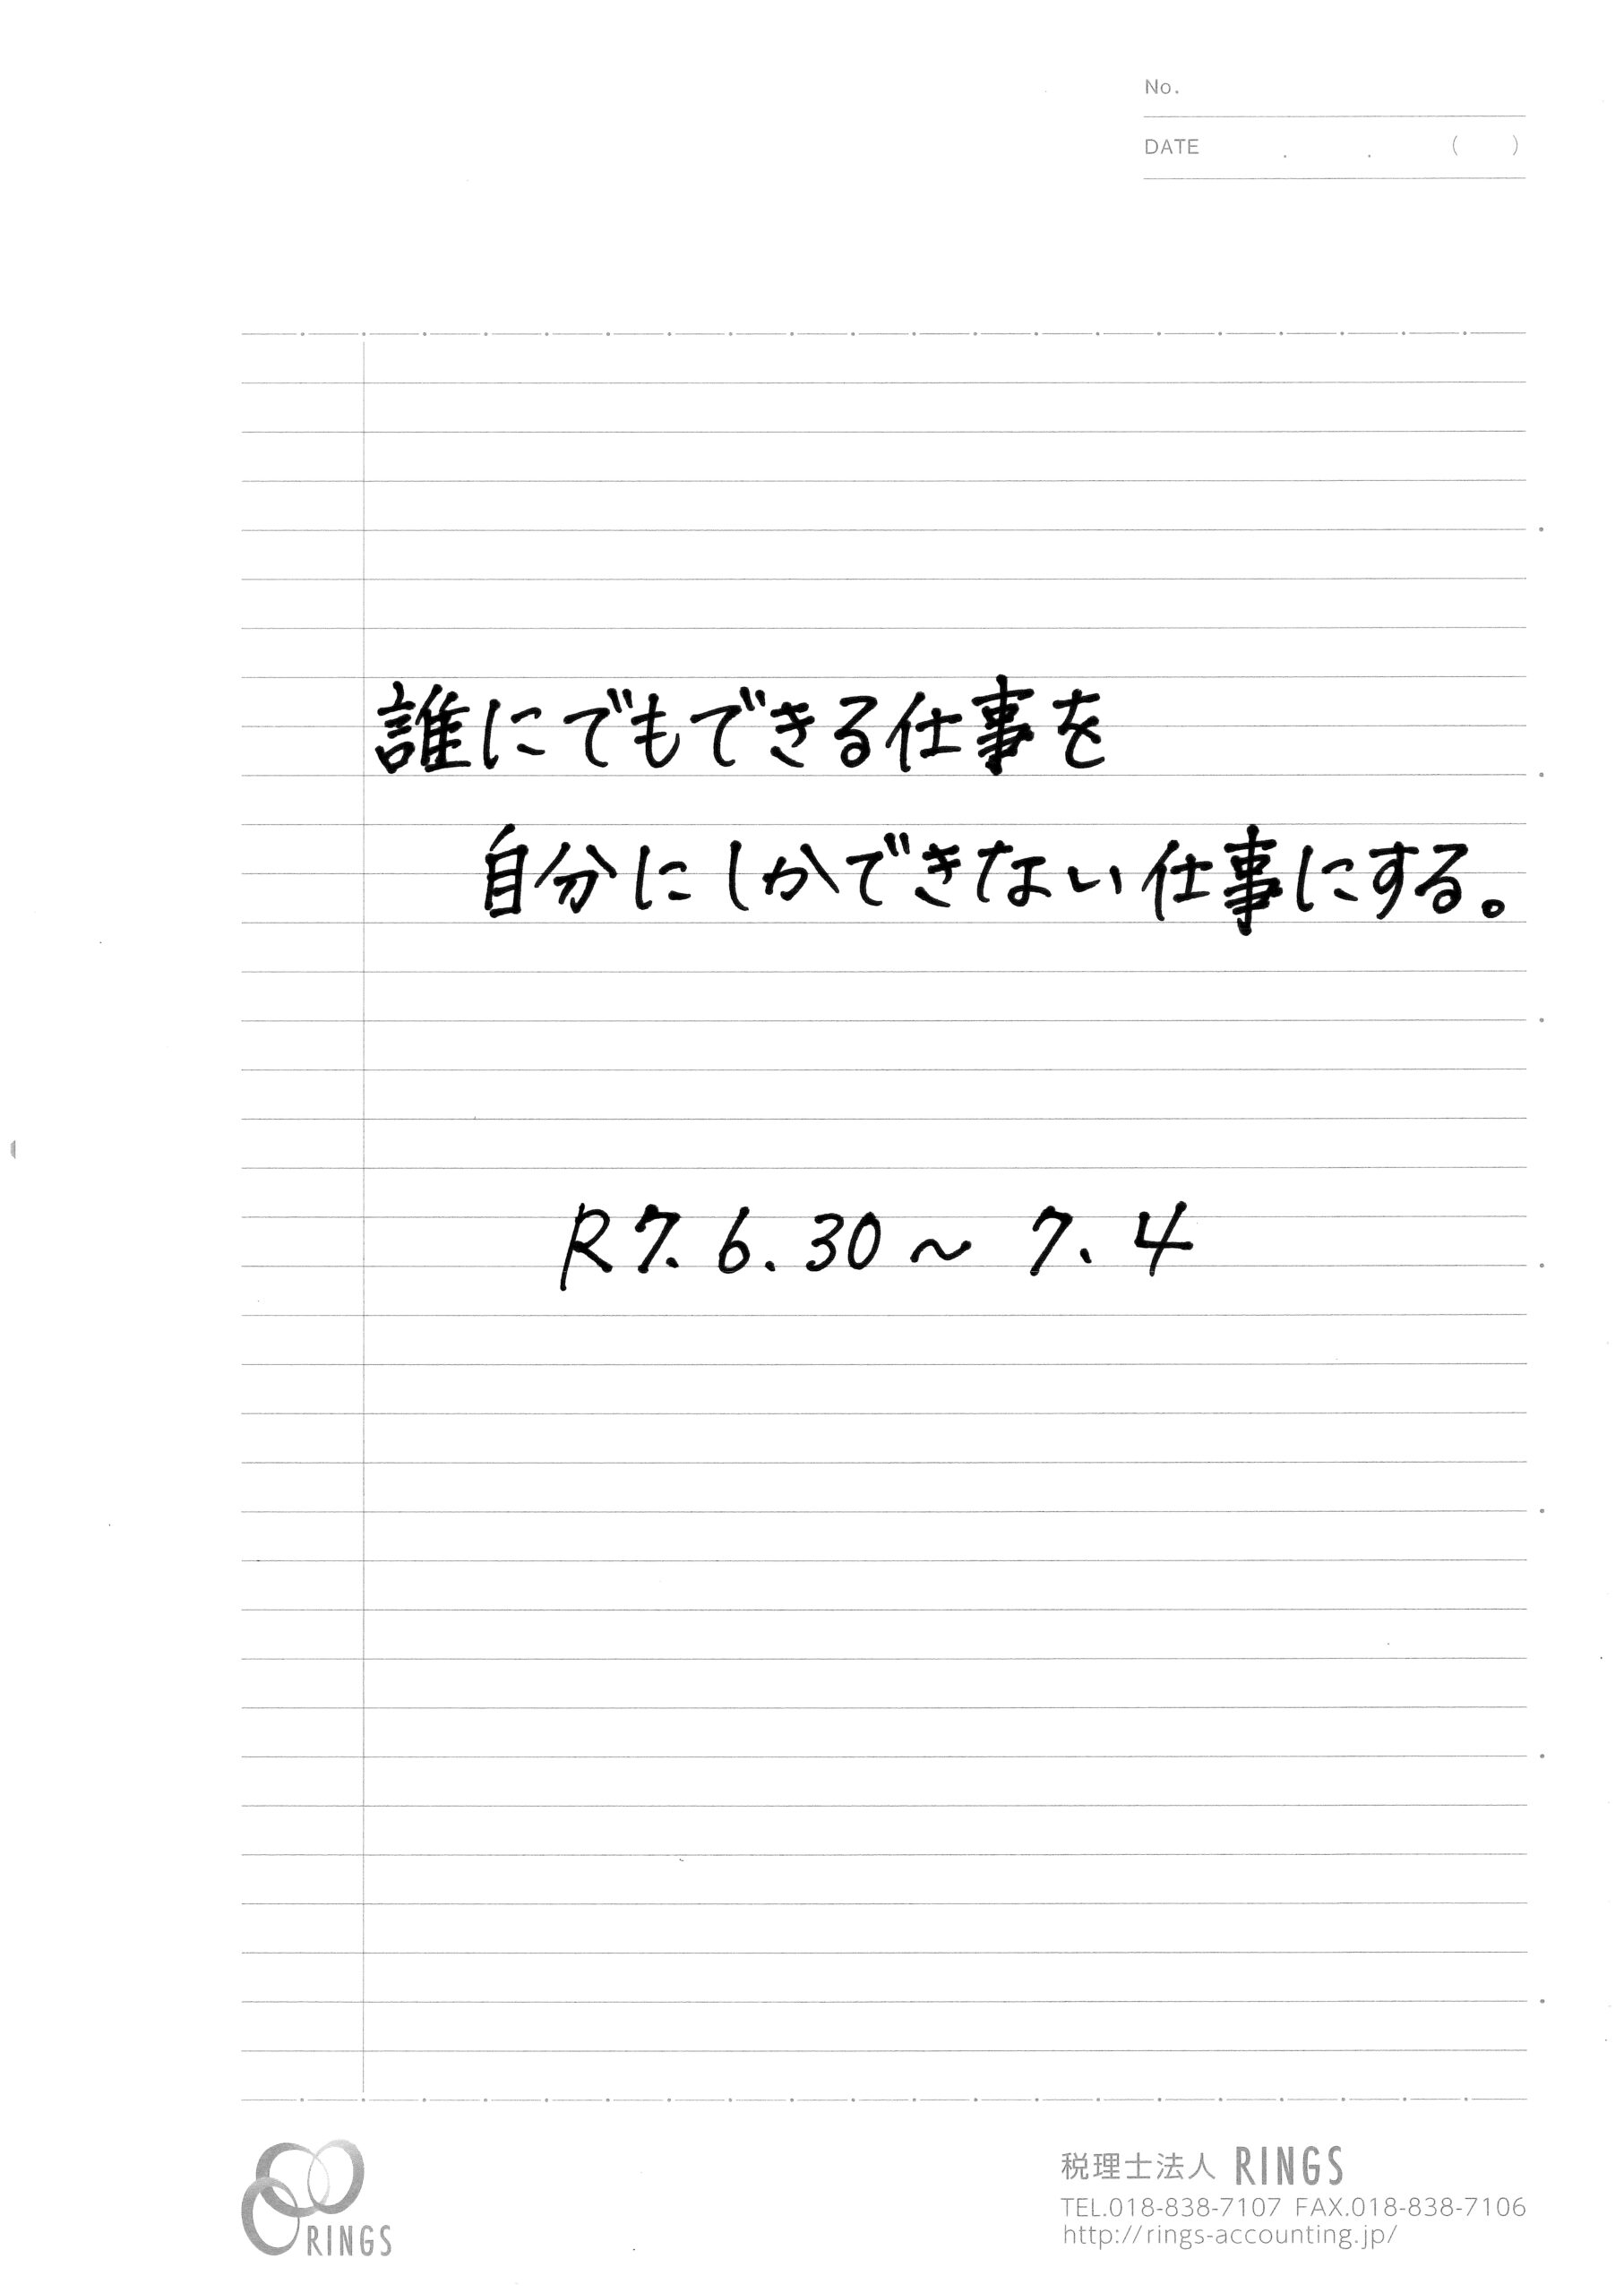 No.
DATE . . ( )
誰にでもできる仕事を
自分にしかできない仕事にする。
R7.6.30〜7.4
RINGS
税理士法人 RINGS
TEL.018-838-7107 FAX.018-838-7106
http://rings-accounting.jp/